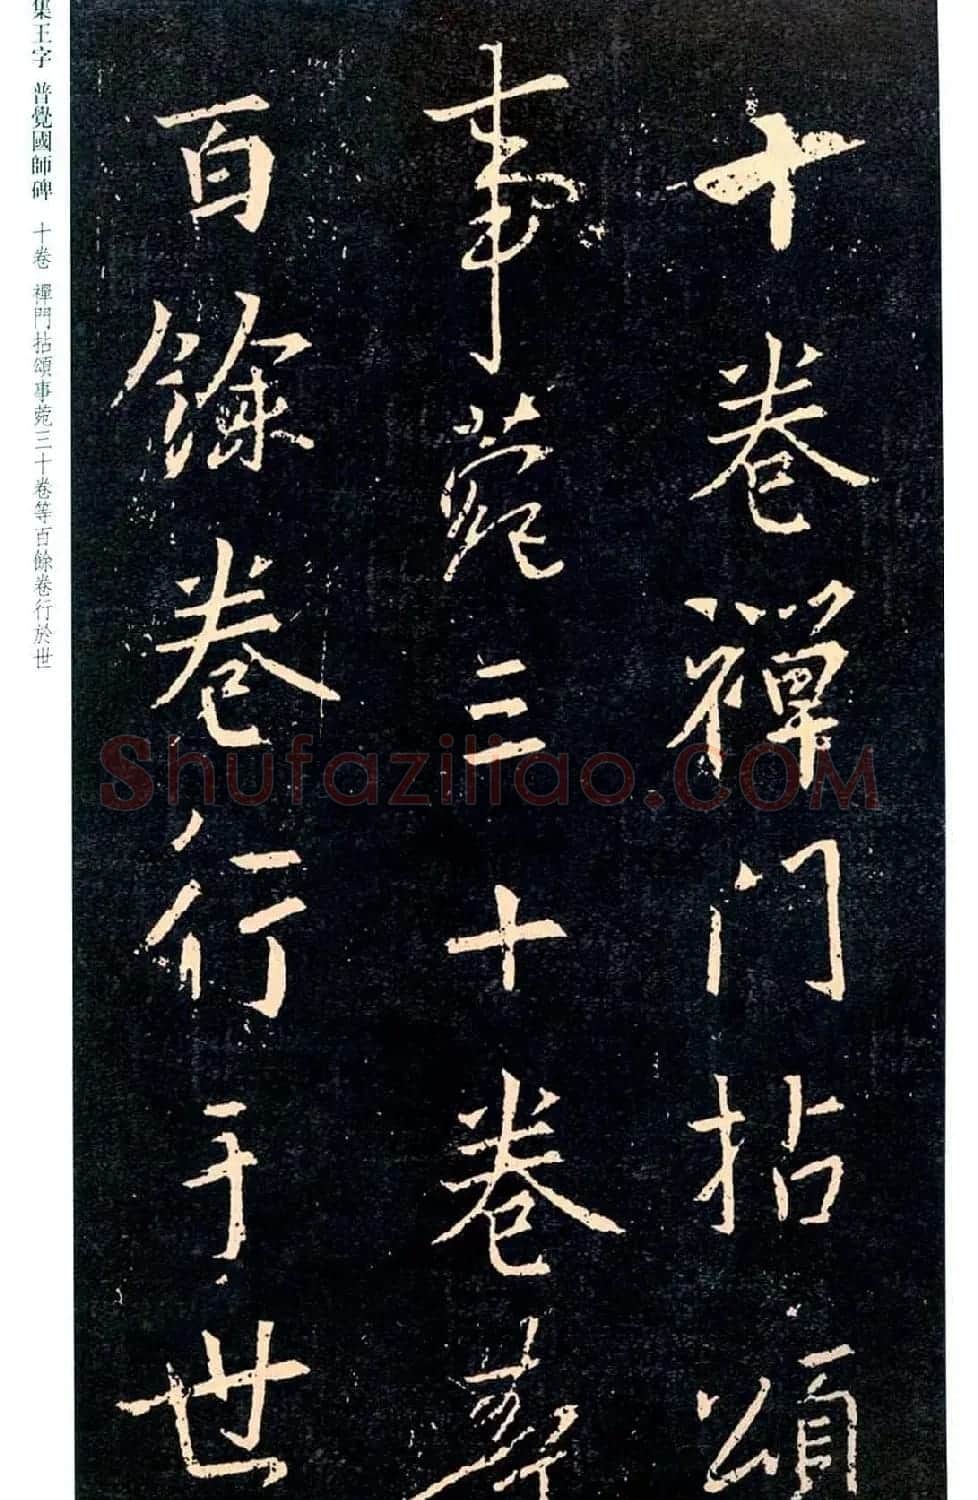 十卷禪门拈頌
事菀三十卷等
百餘卷行于世
集王字 普覺國師碑 十卷 禪門拈頌事菀三十卷等百餘卷行於世
Shufaziliao.COM